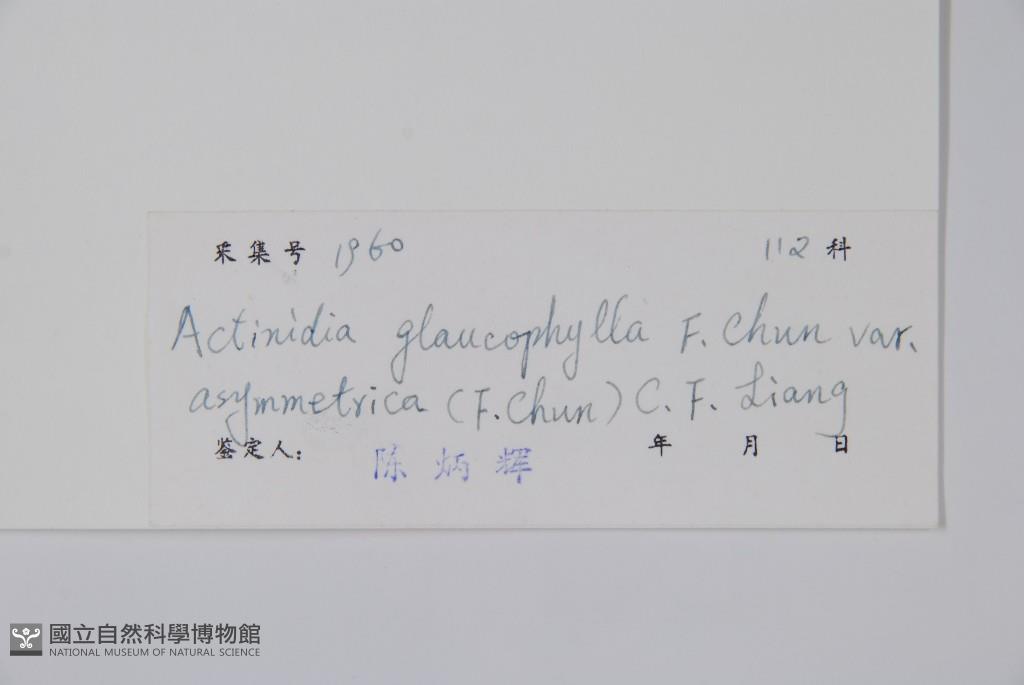 采集号 1960 112 科
Actinidia glaucophylla F. Chun var.
asymmetrica (F. Chun) C. F. Liang
鉴定人: 陈炳辉 年 月 日
國立自然科學博物館
NATIONAL MUSEUM OF NATURAL SCIENCE